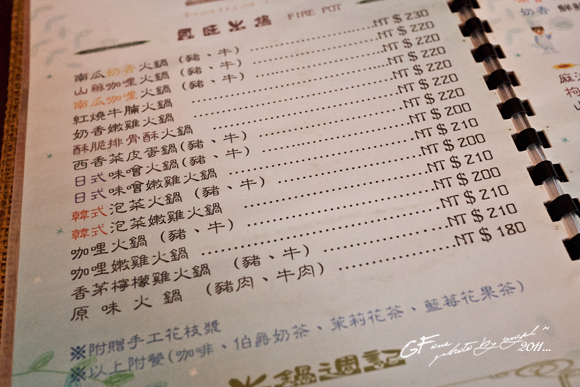 氣旺火鍋 FIRE POT
南瓜奶香火鍋 (豬、牛) ……………… NT$230
山藥咖哩火鍋 (豬、牛) ……………… NT$220
南瓜咖哩火鍋 (豬、牛) ……………… NT$220
紅燒牛腩火鍋 ……………… NT$220
奶香嫩雞火鍋 ……………… NT$220
酥脆排骨酥火鍋 ……………… NT$220
西香菜皮蛋鍋(豬、牛) ……………… NT$220
日式味噌火鍋(豬、牛) ……………… NT$200
日式味噌嫩雞火鍋 ……………… NT$210
韓式泡菜火鍋 (豬、牛) ……………… NT$200
韓式泡菜嫩雞火鍋 ……………… NT$210
咖哩火鍋 (豬、牛) ……………… NT$200
咖哩嫩雞火鍋 ……………… NT$210
香茅檸檬雞火鍋 (豬、牛) ……………… NT$210
原味火鍋 (豬肉、牛肉) ……………… NT$180
※附贈手工花核漿
※以上附餐(咖啡、伯爵奶茶、茉莉花茶、藍莓花果茶)
火鍋週記
奶香
2011...